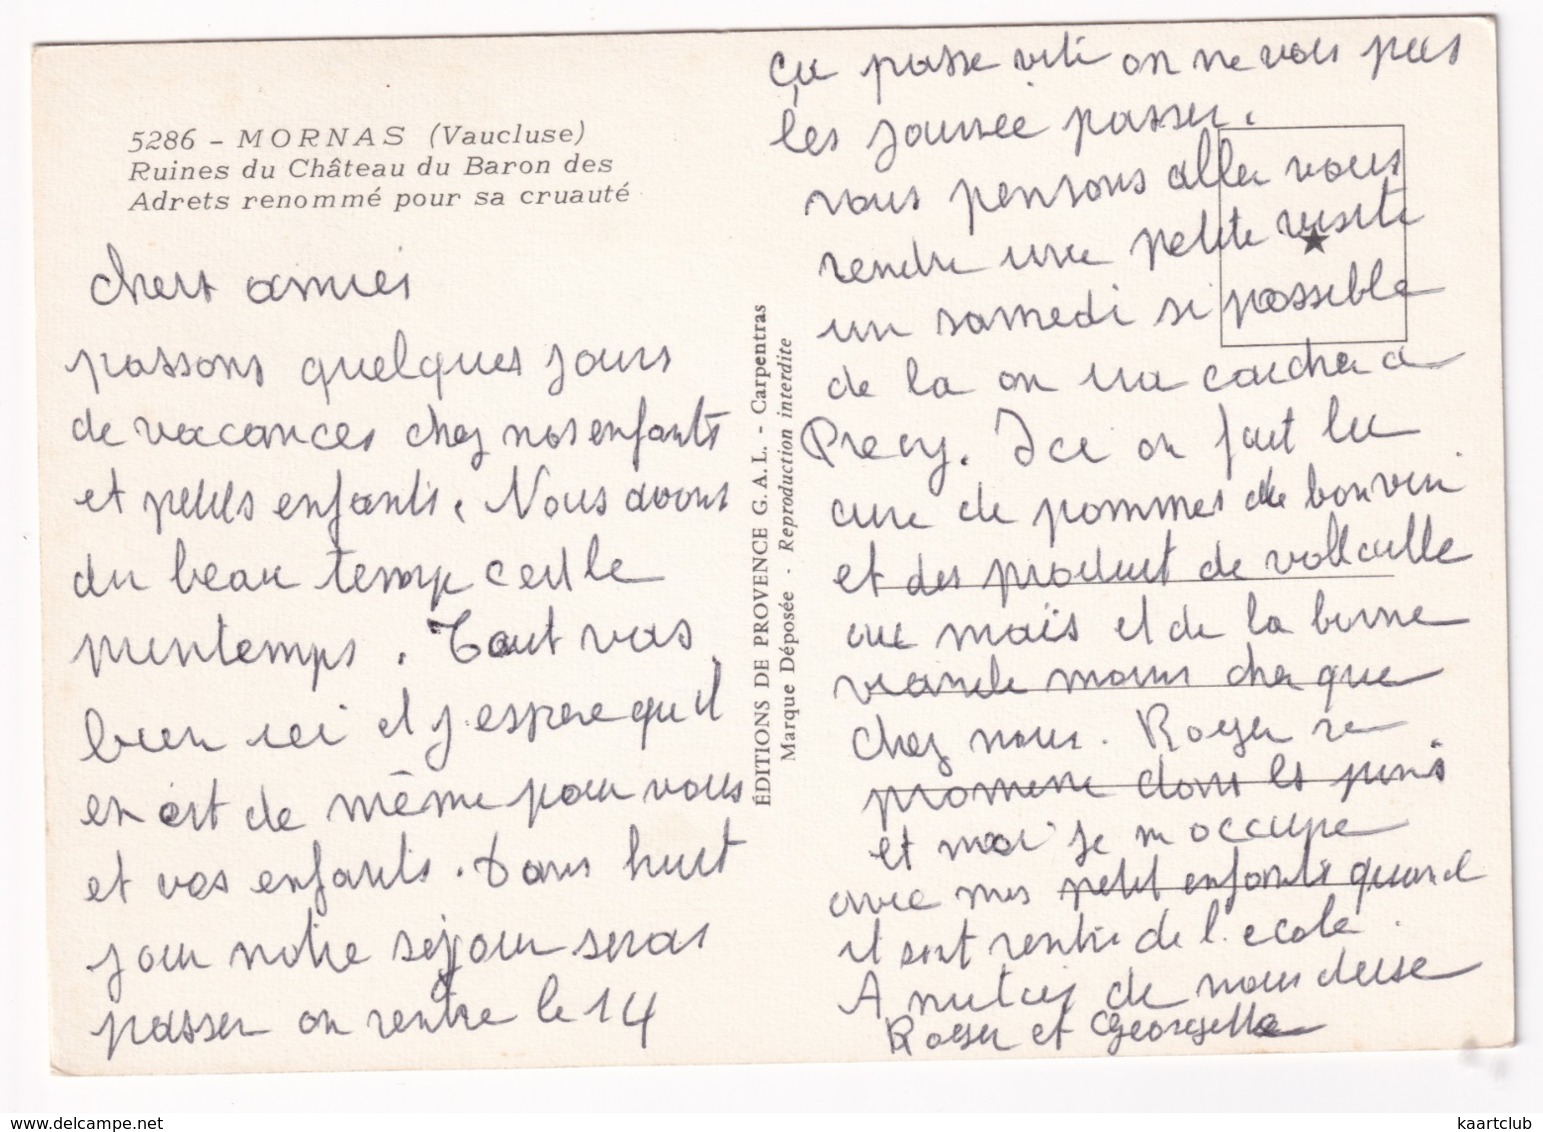 5286 - MORNAS (Vaucluse)
Ruines du Château du Baron des
Adrets renommé pour sa cruauté
chers amies
passons quelques jours
de vacances chez nos enfants
et petits enfants. Nous avons
du beau temp cest le
printemps. Tout vas
bien ici et j espere qu il
en est de même pour vous
et vos enfants. Dans huit
jour notre séjour seras
passer on rentre le 14
ça passe vite on ne vois pas
les journée passer.
nous pensons aller vous
rendre une petite visite
un samedi si possible
de la on ira coucher a
Precy. Ici on fait la
cure de pommes de bon vin
et des produit de vollaille
au maïs et de la bonne
viande moins cher que
chez nous. Roger se
promene dans les pins
et moi je m occupe
avec mes petit enfants quand
il sont rentre de l. ecole.
Amities de nous deuse
Roger et Georgette
ÉDITIONS DE PROVENCE G. A. L. - Carpentras
Marque Déposée - Reproduction interdite
www.delcampe.net
kaartclub